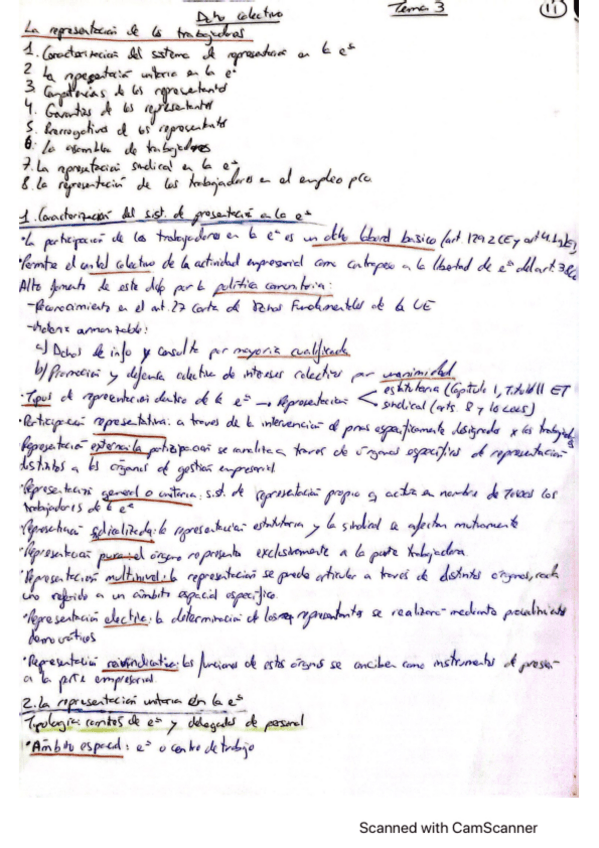 Dcho colectivo Tema 3 11
La representación de los trabajadores
1. Caracterización del sistema de representación en la eª
2 La representación unitaria en la eª
3 Competencias de los representantes
4. Garantías de los representantes
5. Prerrogativas de los representantes
6: La asamblea de trabajadores
7. La representación sindical en la eª
8. La representación de los trabajadores en el empleo pco.
1. Caracterización del sist. de presentación en la eª
·La participación de los trabajadores en la eª es un dcho laboral básico (art. 129.2 CE y art 4.1 ET)
·Permite el control colectivo de la actividad empresarial como contrapeso a la libertad de eª del art. 38 CE
Alto fomento de este dcho por la política comunitaria:
-Reconocimiento en el art. 27 Carta de Dchos Fundamentales de la UE
-Materia armonizable:
a) Dchos de info y consulta por mayoría cualificada
b) Promoción y defensa colectiva de intereses colectivos por unanimidad
·Tipos de representación dentro de la eª → Representación estatutaria (Capítulo 1, Título II ET
sindical (arts. 8 y 10 LOLS)
·Participación representativa: a traves de la intervención de pnas específicamente designadas x los trabajads
Representación externa: la participación se canaliza a traves de órganos específicos de representación
distintos a los órganos de gestión empresarial
·Representación general o unitaria: sist. de representación propio q actúa en nombre de todos los
trabajadores de la eª
·Representación sindicalizada: la representación estatutaria y la sindical se afectan mutuamente
·Representación pura: el órgano representa exclusivamente a la parte trabajadora.
·Representación multinivel: la representación se puede articular a través de distintos órganos, cada
uno referido a un ámbito espacial específico.
·Representación electiva: la determinación de los representantes se realizará mediante procedimientos
democráticos
·Representación reivindicativa: las funciones de estos órganos se conciben como instrumentos de presión
a la parte empresarial
2. La representación unitaria en la eª
Tipología: comités de eª y delegados de personal
·Ámbito espacial: eª o centro de trabajo
Scanned with CamScanner